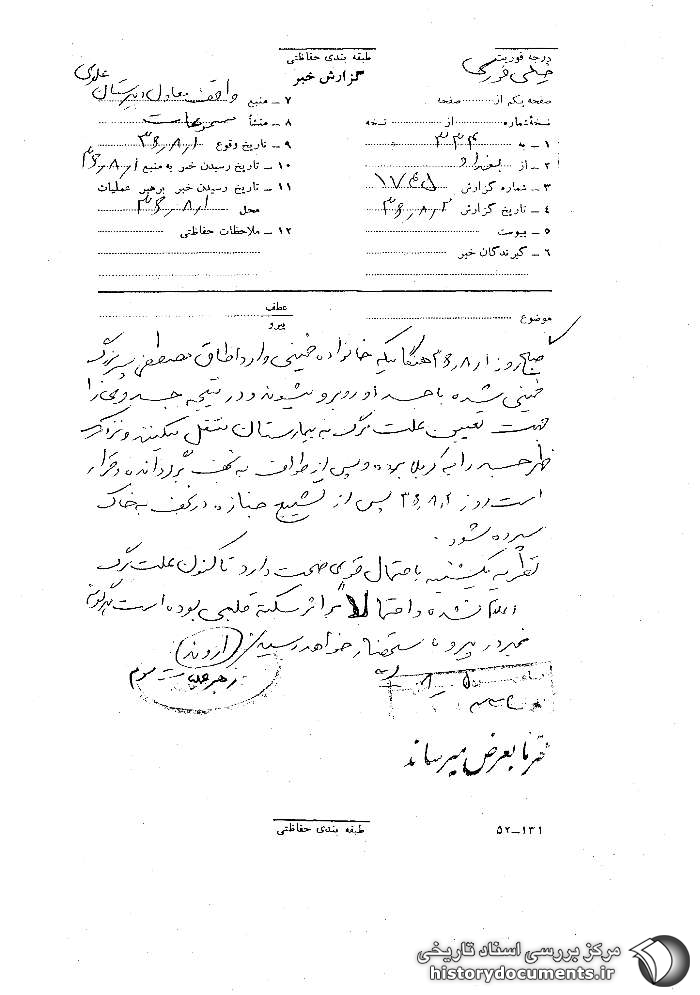 درجه فوریت
خیلی فوری
طبقه بندی حفاظتی
گزارش خبر
صفحه یکم از صفحه
نسخه شماره از نسخه
۱ ـ به ۳۳۴
۲ ـ از بغداد
۳ ـ شماره گزارش
۴ ـ تاریخ گزارش ۳۶٫۸٫۲
۵ ـ پیوست
۶ ـ گیرندگان خبر
۷ ـ منبع واقف معادل دبیرستان
۸ ـ منشأ
۹ ـ تاریخ وقوع ۳۶٫۸٫۱
۱۰ ـ تاریخ رسیدن خبر به منبع ۳۶٫۸٫۱
۱۱ ـ تاریخ رسیدن خبر برهبر عملیات
محل ۳۶٫۸٫۱
۱۲ ـ ملاحظات حفاظتی
موضوع
عطف
پیرو
صبح روز ۳۶٫۸٫۱ هنگامیکه خانواده خمینی وارد اطاق مصطفی پسر بزرگ
خمینی شده با جسد او روبرو میشوند و در نتیجه جسد ویرا
جهت تعیین علت مرگ به بیمارستان منتقل میکنند و نزدیک
ظهر جسد را به کربلا برده و پس از طواف به نجف برگردانده و قرار
است روز ۳۶٫۸٫۲ پس از تشییع جنازه در نجف به خاک
سپرده شود.
نظریه یکشنبه باحتمال قوی صحت دارد تاکنون علت مرگ
اعلام نشده و احتمالاً بر اثر سکته قلبی بوده است هرگونه
خبر در پیرو باستحضار خواهد رسید (اروند)
رهبر عملیات سوم
بعرض میرساند
طبقه بندی حفاظتی
۵۲-۱۳۱
مرکز بررسی اسناد تاریخی
historydocuments.ir